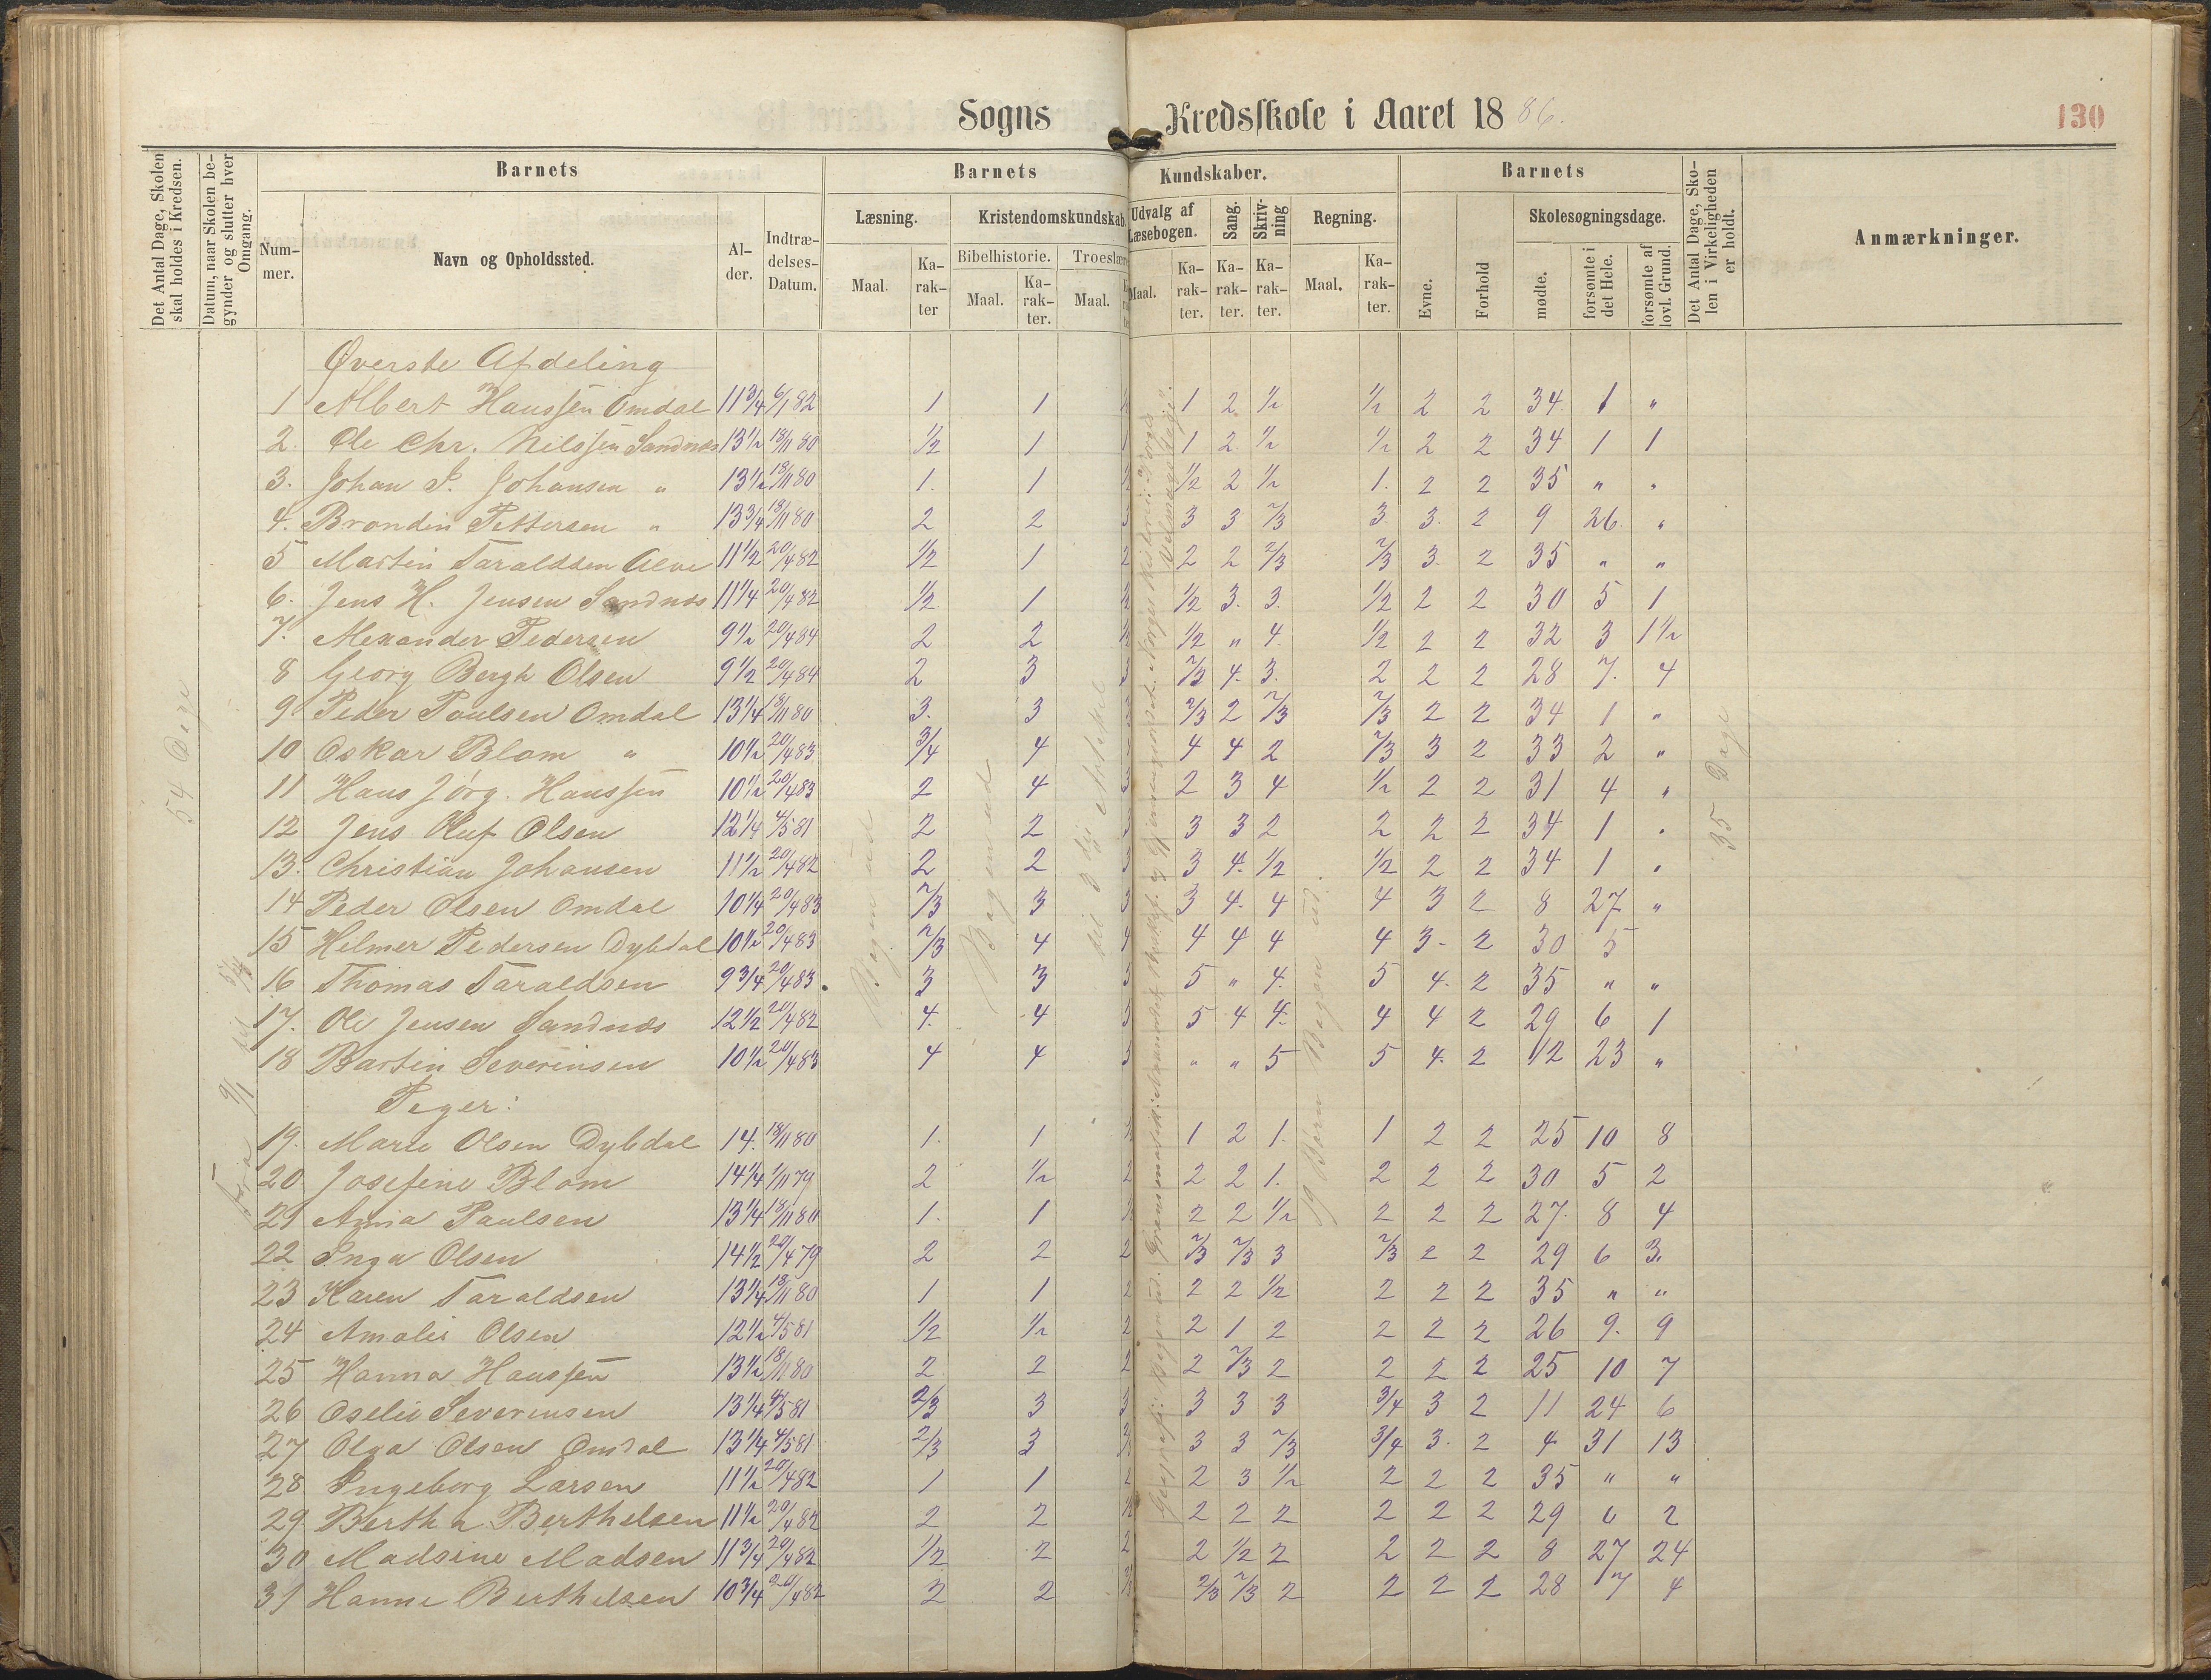 Sogns Kredsskole i Aaret 1886.
130
Det Antal Dage, Skolen skal holdes i Kredsen.
Datum, naar Skolen begynder og slutter hver Omgang.
Barnets
Nummer.
Navn og Opholdssted.
Alder.
Indtrædelses-Datum.
Barnets Kundskaber.
Læsning.
Maal.
Karakter
Kristendomskundskab.
Bibelhistorie.
Maal.
Karakter.
Troeslære
Maal.
Udvalg af Læsebogen.
Maal.
Karakter.
Sang.
Karakter.
Skrivning
Karakter.
Regning.
Maal.
Karakter.
Barnets
Evne.
Forhold
Skolesøgningsdage.
mødte.
forsømte i det Hele.
forsømte af lovl. Grund.
Det Antal Dage, Skolen i Virkeligheden er holdt.
Anmærkninger.
54 Dage
Bogen ud
Bogen ud
til 3die Artikel
19 Børn Bogen ud.
35 Dage
Øverste Afdeling
1 Albert Hanssen Omdal 11 3/4 6/1 82 1 1 1 2 1/2 1/2 2 2 34 1 "
2. Ole Chr. Nilssen Sandnæs 13 1/2 18/11 80 1/2 1 1 1 2 1/2 1/2 2 2 34 1 1
3. Johan P. Johansen " 13 1/2 18/11 80 1. 1 1/2 2 1/2 1. 2 2 35 " "
4. Brondin Pettersen " 13 3/4 18/11 80 2 2 3 3 3 2/3 3 3. 2 9 26. "
5 Martin Taraldsen Alve 11 1/2 20/4 82 1/2 1 2 2 2 2/3 2/3 3. 2 35 " "
6. Jens H. Jensen Sandnæs 11 1/4 20/4 82 1/2 1 1/2 3. 3. 1/2 2 2 30 5 1
7. Alexander Pedersen 9 1/2 20/4 84 2 2 1/2 " 4. 1/2 2 2 32 3 1 1/2
8 Georg Bergh Olsen 9 1/2 20/4 84 2 3 3 2/3 4. 3. 2 2 2 28 7. 4
9 Peder Poulsen Omdal 13 1/4 18/11 80 3. 3 2/3 2 2/3 2/3 2 2 34 1 "
10 Oskar Blom " 10 1/2 20/4 83 3/4 4 4 4 2 2/3 3 2 33 2 "
11 Hans Jörg. Hanssen 10 1/2 20/4 83 2 4 3 2 3 4 1/2 2 2 31 4 "
12 Jens Oluf Olsen 12 1/4 4/5 81 2 2 3 3 3 2 2 2 2 34 1 "
13. Christian Johansen 11 1/2 20/4 82 2 2 3 3 4. 1/2 1/2 2 2 34 1 "
14 Peder Olsen Omdal 10 1/4 20/4 83 2/3 3 3 3 4. 4 4 3 2 8 27 "
15 Helmer Pedersen Dybdal 10 1/2 20/4 83 2/3 4 4 4 4 4 4 3. 2 30 5
16 Thomas Taraldsen 9 3/4 20/4 83. 3 3 5 " 4. 5 4. 2 35 " "
17. Ole Jensen Sandnæs 12 1/2 20/4 82 4. 4 5 4 4. 4 4 2 29 6 1
18 Bartin Severinsen 10 1/2 20/4 83 4 4 " " 5 5 4. 2 12 23 "
Piger:
19. Marie Olsen Dybdal 14. 18/11 80 1. 1 1 2 1. 1 2 2 25 10 8
20 Josefine Blom 14 1/4 1/11 79 2 1/2 2 2 2 1. 2 2 2 30 5 2
21 Anna Paulsen 13 1/4 18/11 80 1. 1 2 2 1/2 2 2 2 27. 8 4
22 Inga Olsen 14 1/2 20/4 79 2 2 2 2/3 2/3 3 2/3 2 2 29 6 3.
23 Karen Taraldsen 13 1/4 18/11 80 1 1 2 2 2 1/2 2 2 2 35 " "
24 Amalie Olsen 12 1/2 4/5 81 1/2 1/2 2 2 1 2 2 2 2 26 9. 9
25 Hanna Hanssen 13 1/2 18/11 80 2 2 2 2 2/3 2 2 2 2 25 10 7
26 Oselie Severinsen 13 1/4 4/5 81 2/3 3 3 3 3 3 3/4 3 2 11 24 6
27 Olga Olsen Omdal 13 1/4 4/5 81 2/3 3 3 3 2/3 3/4 3. 2 4 31 13
28 Ingeborg Larsen 11 1/2 20/4 82 1 1 2 2 3 1/2 2 2 2 35 " "
29 Bertha Berthelsen 11 1/2 20/4 82 2 2 2 2 2 2 2 2 29 6 2
30 Madsine Madsen 11 3/4 20/4 82 1/2 2 2 2 1/2 2 2 2 2 8 27 24
31 Hanne Berthelsen 10 3/4 20/4 82 2 2 2/3 2/3 2 2 2 2 28 7 4